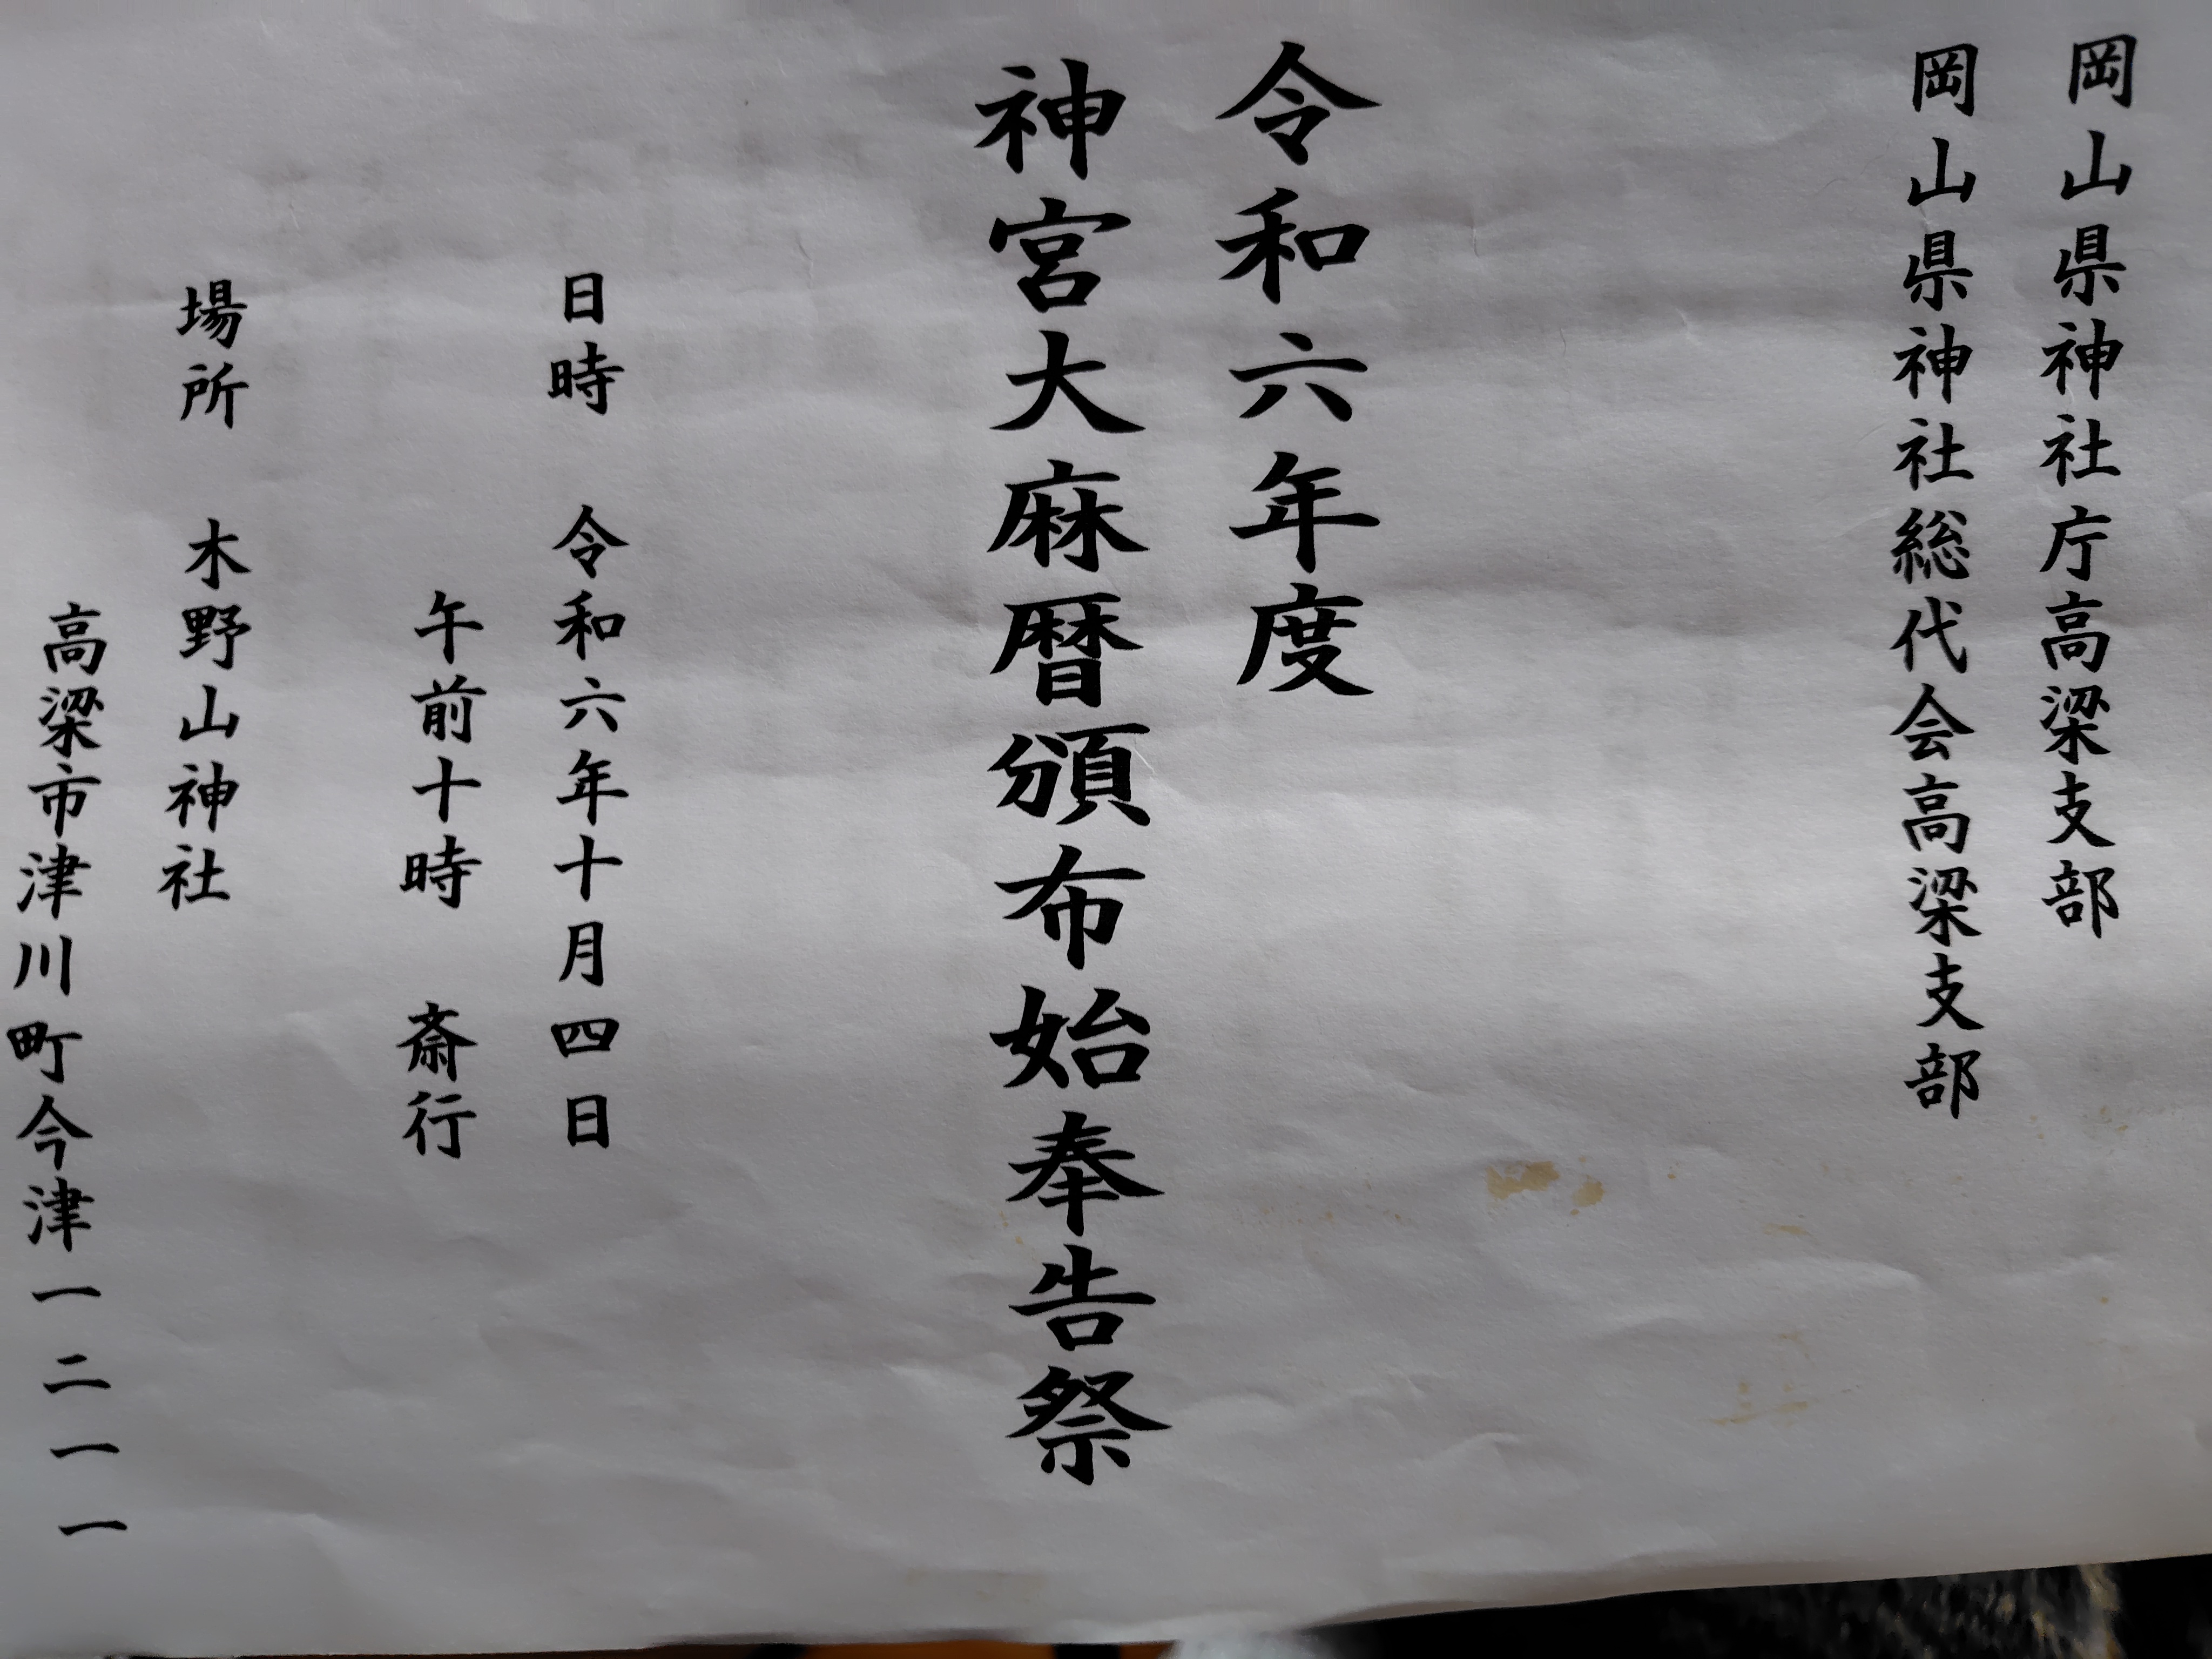 岡山県神社庁高梁支部
岡山県神社総代会高梁支部
令和六年度
神宮大麻暦頒布始奉告祭
日時　令和六年十月四日
午前十時　斎行
場所　木野山神社
高梁市津川町今津一二一一